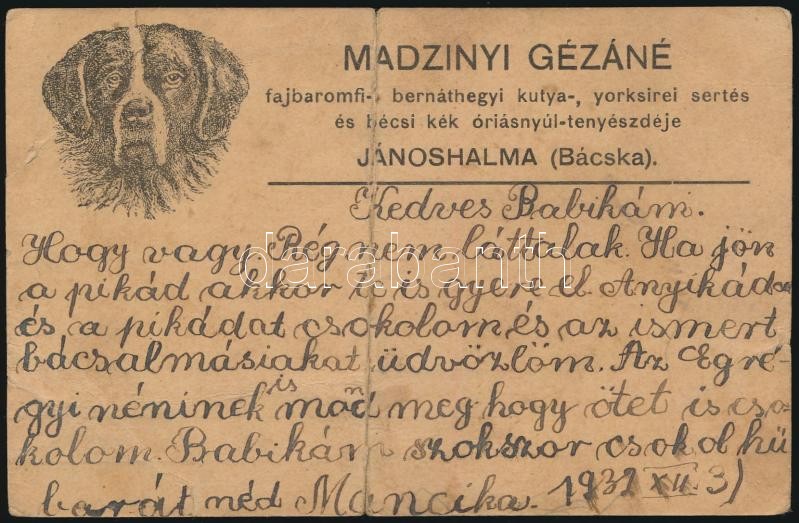 MADZINYI GÉZÁNÉ
fajbaromfi-, bernáthegyi kutya-, yorksirei sertés
és bécsi kék óriásnyúl-tenyészdéje
JÁNOSHALMA (Bácska).
Kedves Babikám.
Hogy vagy. Rég nem láttalak. Ha jön
a pikád akkor is is gyere el. Anyikád
és a pikádat csokolom és az ismert
bácsalmásiakat üdvözlöm. Az Egré-
gyi néninek is mond meg hogy ötet is cso-
kolom. Babikám szokszor csokol hü
barát néd Muncika. 1932 XII. 31
darabanth